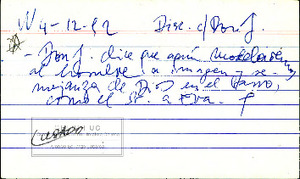 W 4-12-92 Disc. c/ Don J.
- Don J. dice que aquí modelaron
al hombre a imagen y se-
mejanza de Dios en el barro,
como el sr. a Eva.
usado